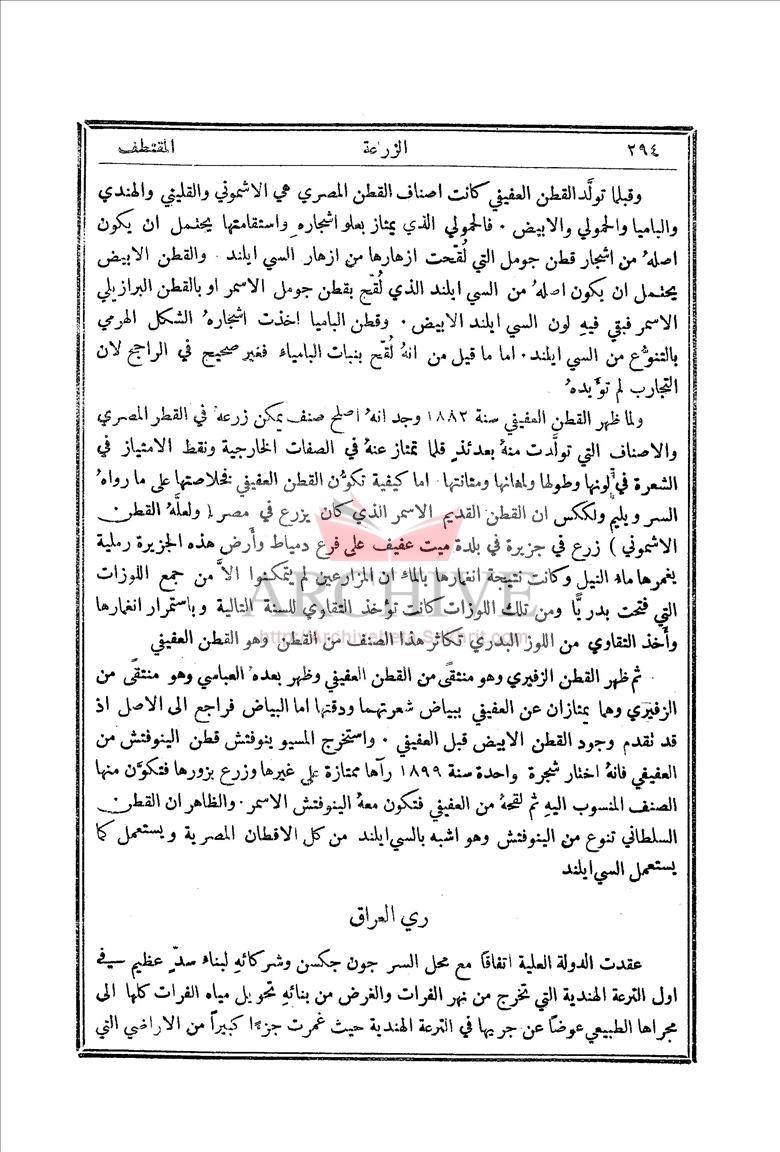 ٢٩٤ الزراعة المقتطف
وقبلما تولَّد القطن العفيفي كانت اصناف القطن المصري هي الاشموني والقليني والهندي
والباميا والحمولي والابيض ٠ فالحمولي الذي يمتاز بعلو اشجارهِ واستقامتها يحتمل ان يكون
اصلهُ من اشجار قطن جومل التي لُقّحت ازهارها من ازهار السي ايلند ٠ والقطن الابيض
يحتمل ان يكون اصلهُ من السي ايلند الذي لُقّح بقطن جومل الاسمر او بالقطن البرازيلي
الاسمر فبقي فيهِ لون السي ايلند الابيض ٠ وقطن الباميا اخذت اشجارهُ الشكل الهرمي
بالتنوُّع من السي ايلند ٠ اما ما قيل من انهُ لُقّح بنبات البامياء فغير صحيح في الراجح لان
التجارب لم تؤَيدهُ
ولما ظهر القطن العفيفي سنة ١٨٨٢ وجد انهُ اصلح صنف يمكن زرعهُ في القطر المصري
والاصناف التي تولَّدت منهُ بعدئذٍ قلما تمتاز عنهُ في الصفات الخارجية ونقط الامتياز في
الشعرة في لونها وطولها ولمعانها ومتانتها ٠ اما كيفية تكوُّن القطن العفيفي فخلاصتها على ما رواهُ
السر ويليم ولككس ان القطن القديم الاسمر الذي كان يزرع في مصر ( ولعلَّهُ القطن
الاشموني ) زرع في جزيرة في بلدة ميت عفيف على فرع دمياط وأَرض هذه الجزيرة رملية
يغمرها ماء النيل وكانت نتيجة انغمارها بالماء ان المزارعين لم يتمكنوا الاَّ من جمع اللوزات
التي فتحت بدريًّا ومن تلك اللوزات كانت تؤخذ التقاوي للسنة التالية وباستمرار انغمارها
وأخذ التقاوي من اللوز البدري تكاثر هذا الصنف من القطن وهو القطن العفيفي
ثم ظهر القطن الزفيري وهو منتقًى من القطن العفيفي وظهر بعدهُ العباسي وهو منتقًى من
الزفيري وهما يمتازان عن العفيفي ببياض شعرتهما ودقتها اما البياض فراجع الى الاصل اذ
قد تقدم وجود القطن الابيض قبل العفيفي ٠ واستخرج المسيو ينوفتش قطن الينوفتش من
العفيفي فانهُ اختار شجرة واحدة سنة ١٨٩٩ رآها ممتازة على غيرها وزرع بزورها فتكوَّن منها
الصنف المنسوب اليهِ ثم لقحهُ من العفيفي فتكون معهُ الينوفتش الاسمر ٠ والظاهر ان القطن
السلطاني تنوع من الينوفتش وهو اشبه بالسي ايلند من كل الاقطان المصرية ويستعمل كما
يستعمل السي ايلند
ري العراق
عقدت الدولة العلية اتفاقًا مع محل السر جون جكسن وشركائهِ لبناء سدٍّ عظيم في
اول الترعة الهندية التي تخرج من نهر الفرات والغرض من بنائهِ تحويل مياه الفرات كلها الى
مجراها الطبيعي عوضًا عن جريها في الترعة الهندية حيث غمرت جزءًا كبيرًا من الاراضي التي
ARCHIVE